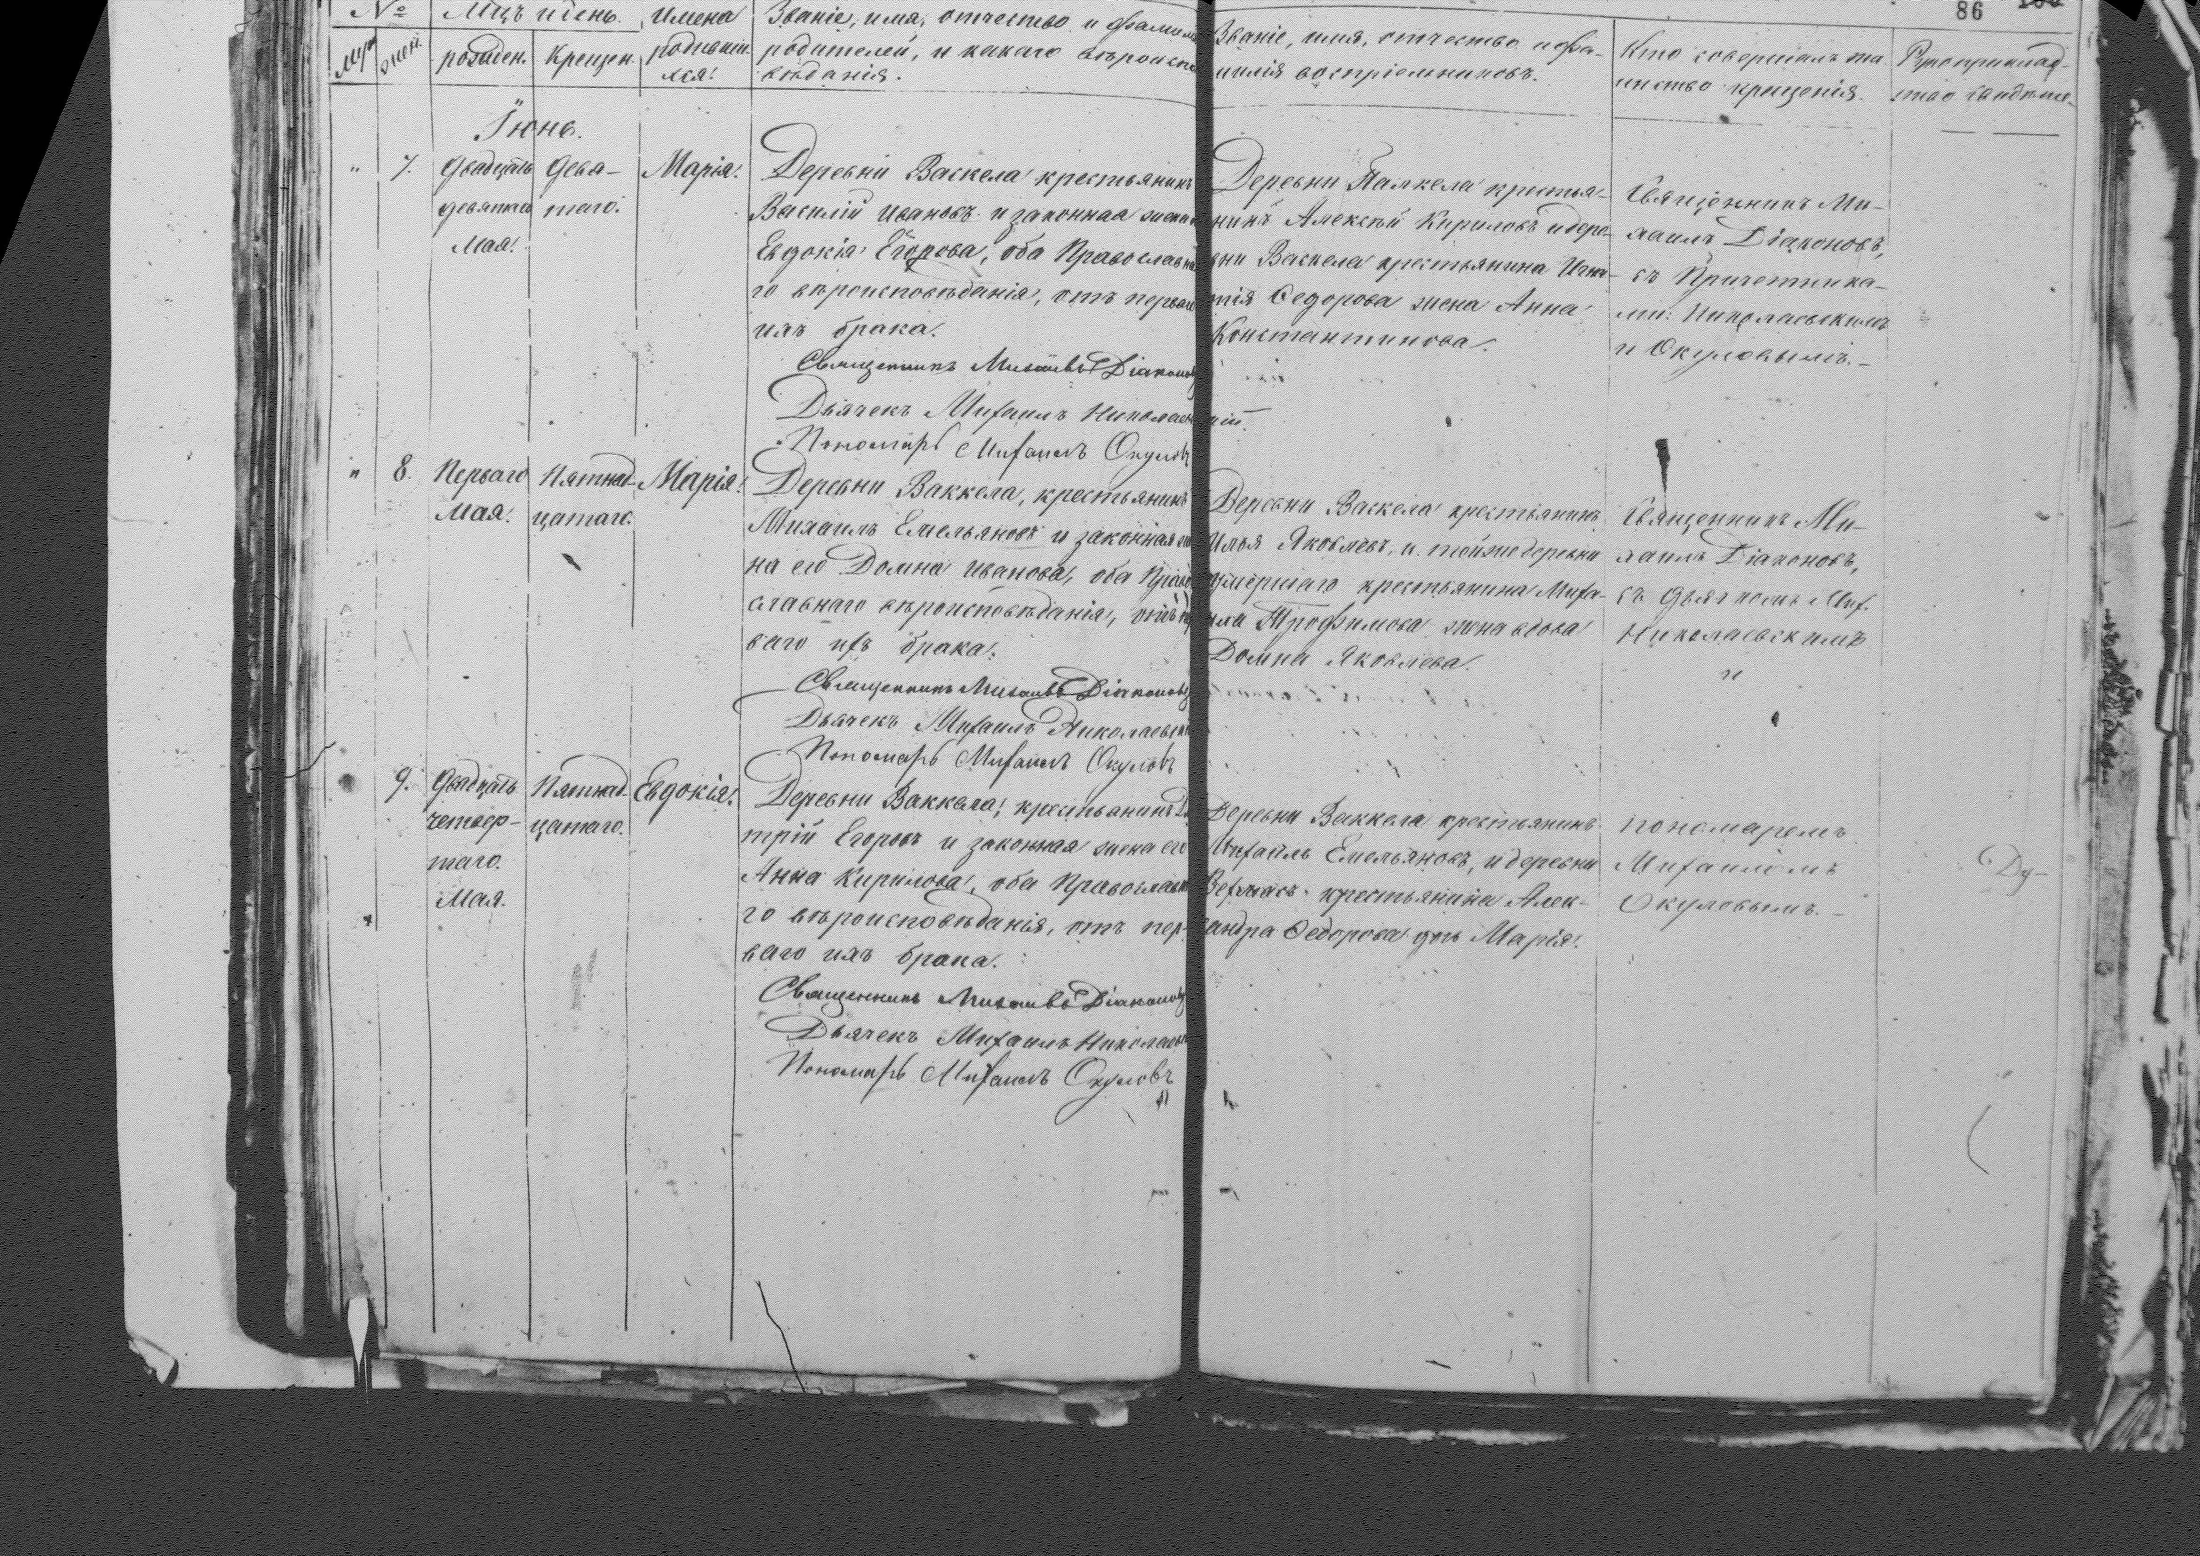 86
№
Мцъ и день.
Имена
Званіе, имя, отчество и фамилія
муж
жен.
рожден.
крещен.
родивших
ся.
родителей, и какаго вѣроиспо
вѣданія.
Званіе, имя, отчество и фа-
милія воспріемниковъ.
Кто совершалъ та
инство крещенія.
Рукоприклад-
ство свидѣте-
Іюнь.
" 7.
Двадцать
девятаго
Мая.
Девя-
таго.
Марія.
Деревни Васкела крестьянинъ
Василій Ивановъ и законная жена
Евдокія Егорова, оба Православна
го вѣроисповѣданія, отъ перваго
ихъ брака.
Священникъ Михаилъ Діаконовъ
Дьячекъ Михаилъ Николаевскій.
Пономарь Михаилъ Окуловъ
Деревни Палкела крестья-
нинъ Алексѣй Кириловъ и дере-
вни Васкела крестьянина Игна-
тія Федорова жена Анна
Константинова.
Священникъ Ми-
хаилъ Діаконовъ,
съ Причетника-
ми: Николаевскимъ
и Окуловымъ.-
" 8.
Перваго
Мая.
Пятнад-
цатаго.
Марія.
Деревни Ваккела, крестьянинъ
Михаилъ Емельяновъ и законная же
на его Домна Иванова, оба Право
славнаго вѣроисповѣданія, отъ пер
ваго ихъ брака.
Священникъ Михаилъ Діаконовъ
Дьячекъ Михаилъ Николаевскій
Пономарь Михаилъ Окуловъ
Деревни Васкела крестьянинъ
Илья Яковлевъ, и тойже деревни
умершаго крестьянина Миха-
ила Трофимова жена вдова
Домна Яковлева.
Священникъ Ми-
хаилъ Діаконовъ,
съ дьячкомъ Мих.
Николаевскимъ
и
9.
Двадцать
четвер-
таго.
Мая.
Пятнад-
цатаго.
Евдокія.
Деревни Ваккела, крестьянинъ Ди
трій Егоровъ и законная жена его
Анна Кирилова, оба Православна
го вѣроисповѣданія, отъ пер-
ваго ихъ брака.
Священникъ Михаилъ Діаконовъ
Дьячекъ Михаилъ Николаевскій
Пономарь Михаилъ Окуловъ
Деревни Ваккела крестьянинъ
Михаилъ Емельяновъ, и деревни
крестьянина Алек-
сандра Федорова дочь Марія.
пономаремъ
Михаиломъ
Окуловымъ.-
Ду-